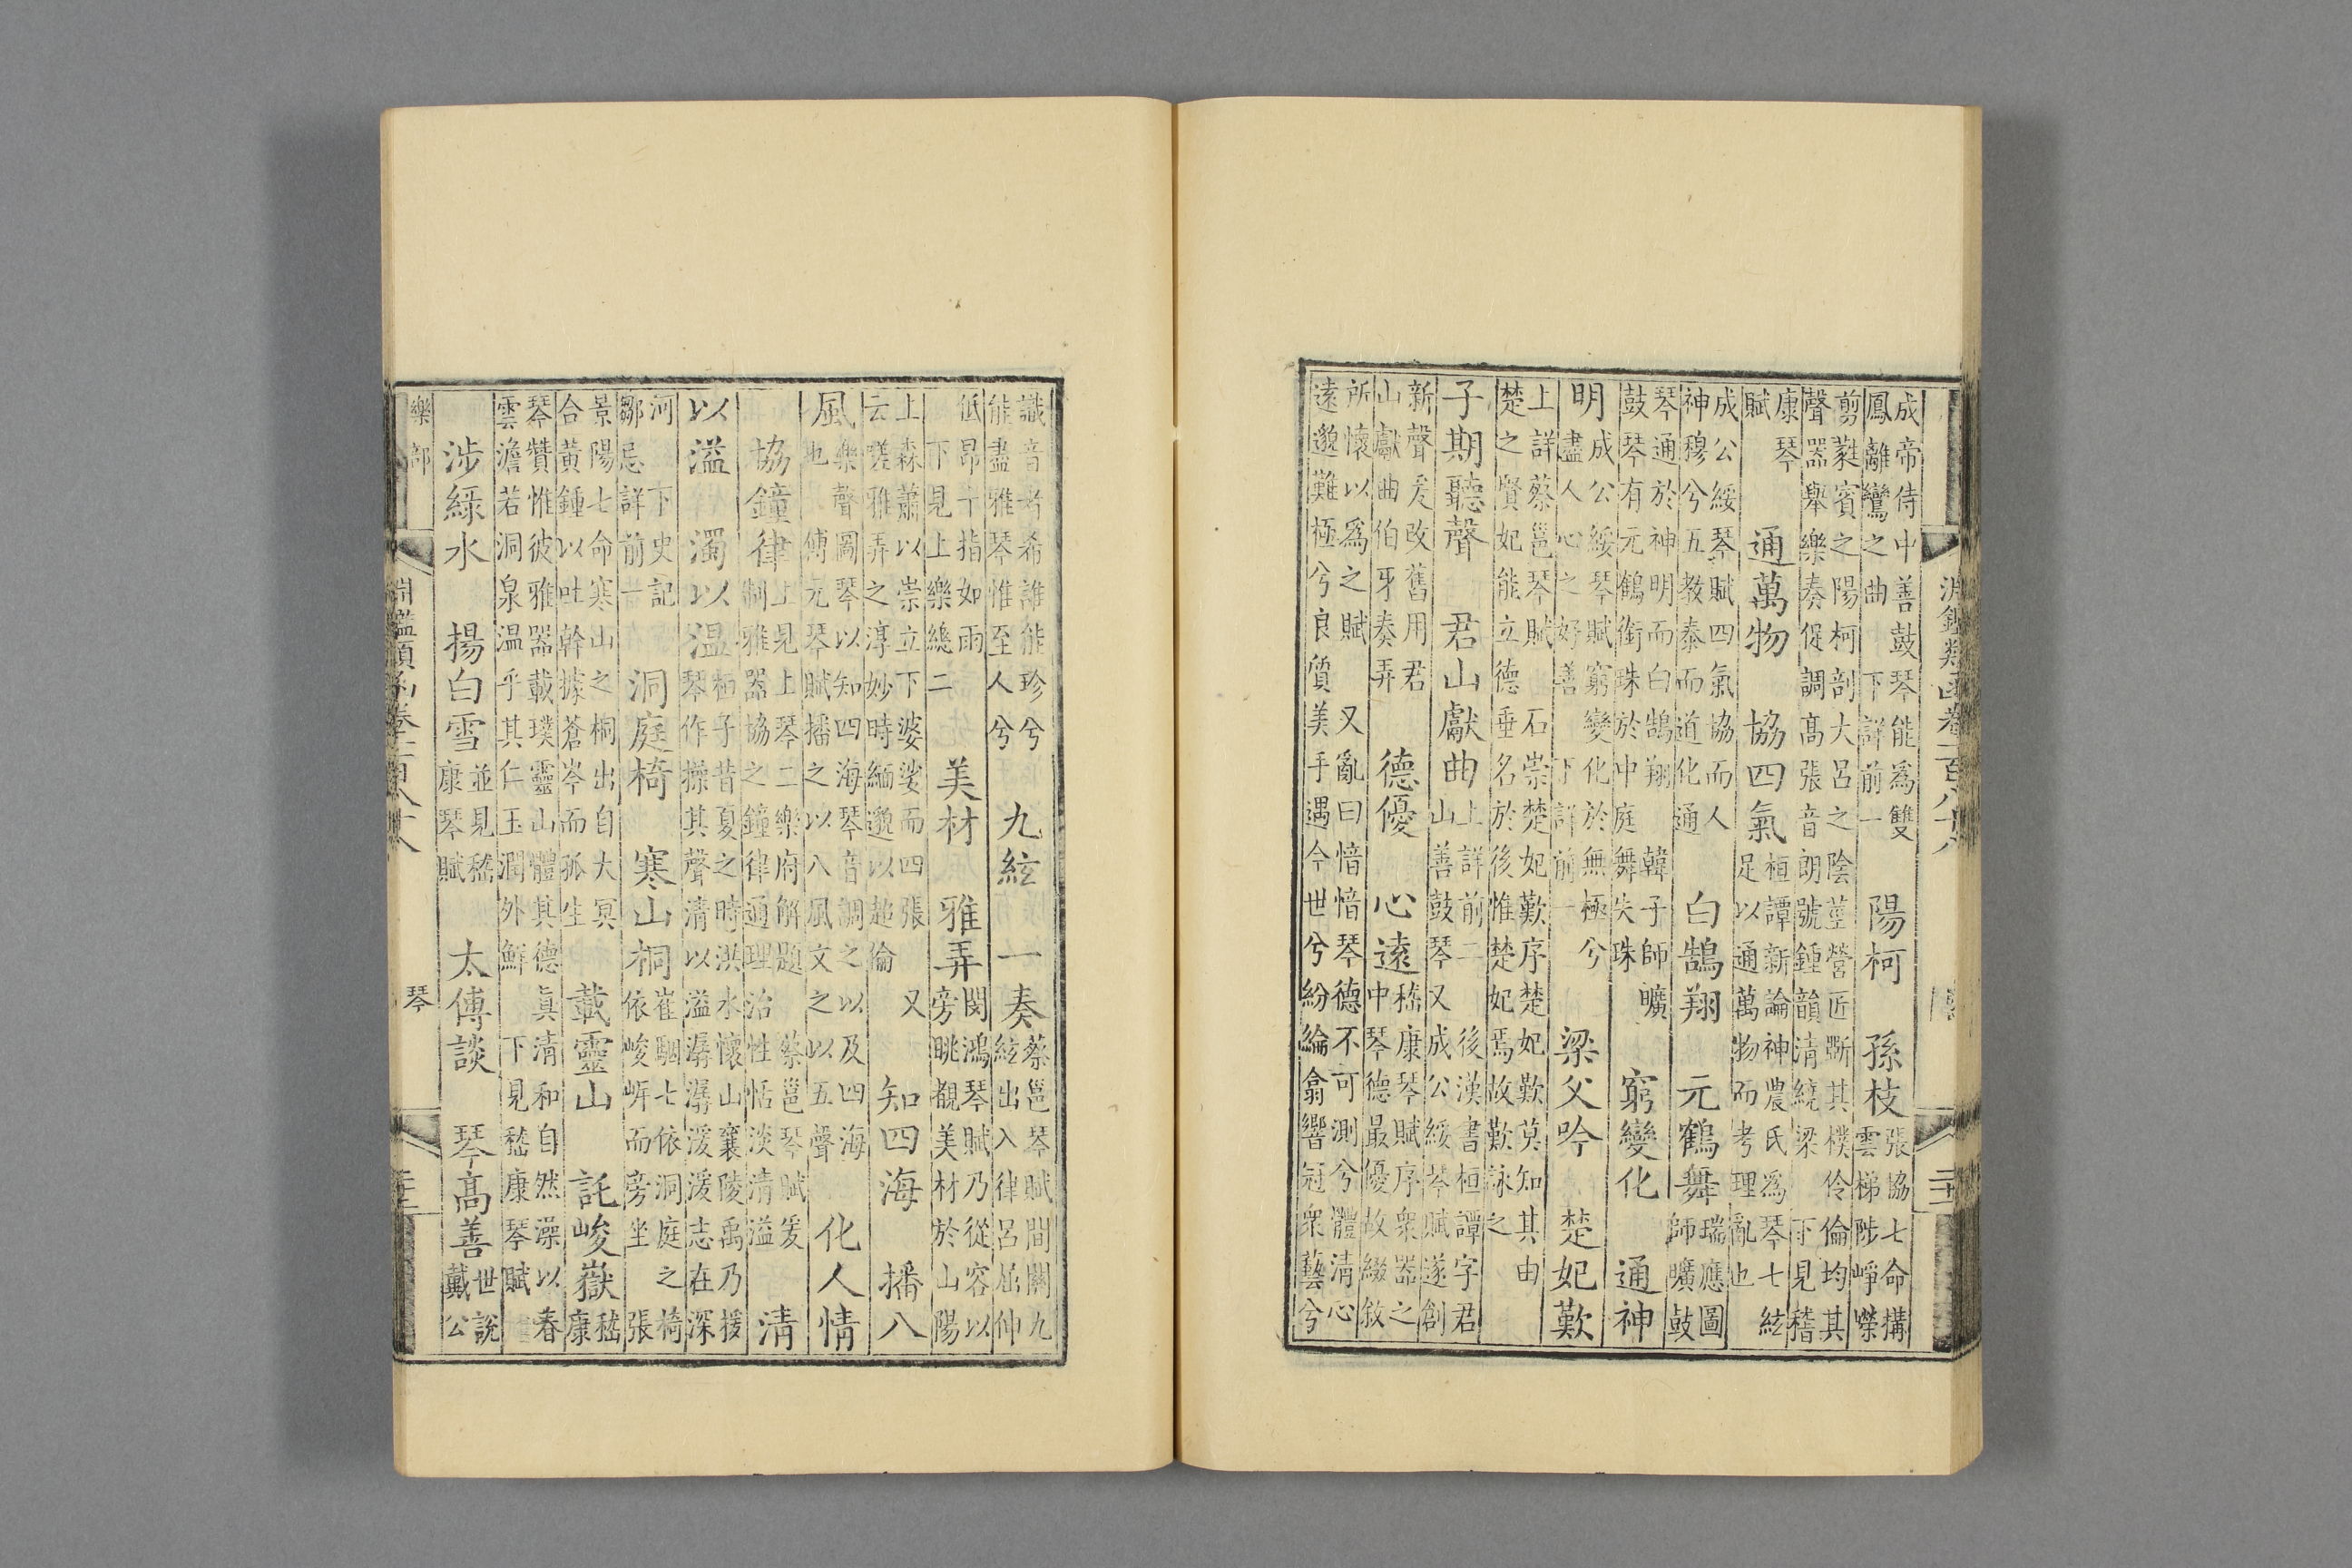 淵鑑類函卷一百八十八
二十二
成帝侍中善鼓琴能為雙
鳳離鸞之曲 下詳前一
陽柯 孫枝
張協七命搆
雲梯陟崢嶸
剪蕤賓之陽柯剖大呂之陰莖營匠斲其樸伶倫均其
聲器舉樂奏促調高張音朗號鍾韻清繞梁 下見嵇
康琴
賦
通萬物 協四氣
桓譚新論神農氏為琴七絃
足以通萬物而考理亂也
成公綏琴賦四氣協而人
神穆兮五教泰而道化通
白鵠翔 元鶴舞
瑞應圖
師曠鼓
琴通於神明而白鵠翔 韓子師曠
鼓琴有元鶴銜珠於中庭舞失珠
窮變化 通神
明
成公綏琴賦窮變化於無極兮
盡人心之好善 下詳前一
梁父吟 楚妃歎
上詳蔡邕琴賦 石崇楚妃歎序楚妃歎莫知其由
楚之賢妃能立德垂名於後惟楚妃焉故歎詠之
子期聽聲 君山獻曲
上詳前二 後漢書桓譚字君
山善鼓琴又成公綏琴賦遂創
新聲爰改舊用君
山獻曲伯牙奏弄
德優 心遠
嵇康琴賦序衆器之
中琴德最優故綴敘
所懷以為之賦 又亂曰愔愔琴德不可測兮體清心
遠邈難極兮良質美手遇今世兮紛綸翕響冠衆藝兮
識音者希誰能珍兮
能盡雅琴惟至人兮
九絃一奏
蔡邕琴賦間關九
絃出入律呂屈伸
低昂十指如雨
下見上樂總二
美材 雅弄
閔鴻琴賦乃從容以
旁眺覩美材於山陽
上森蕭以崇立下婆娑而四張 又
云嗟雅弄之淳妙時緬邈以超倫
知四海 播八
風
樂聲圖琴以知四海琴音調之以及四海
也 傅元琴賦播之以八風文之以五聲
化人情
協鐘律
上見上琴二樂府解題 蔡邕琴賦爰
制雅器協之鐘律通理治性恬淡清溢
清
以溢 濁以溫
栖子昔夏之時洪水懷山襄陵禹乃援
琴作操其聲清以溢潺潺湲湲志在深
河 下史記
鄒忌 詳前一
洞庭椅 寒山桐
崔駰七依洞庭之椅
依峻岸而旁坐 張
景陽七命寒山之桐出自大冥
合黃鍾以吐幹據蒼岑而孤生
載靈山 託峻嶽
嵇
康
琴贊惟彼雅器載璞靈山體其德真清和自然澡以春
雲澹若洞泉溫乎其仁玉潤外鮮 下見嵇康琴賦
涉綠水 揚白雪
並見嵇
康琴賦
太傅談 琴高善
世說
戴公
樂部
淵鑑類函卷一百八十八
琴
二十三